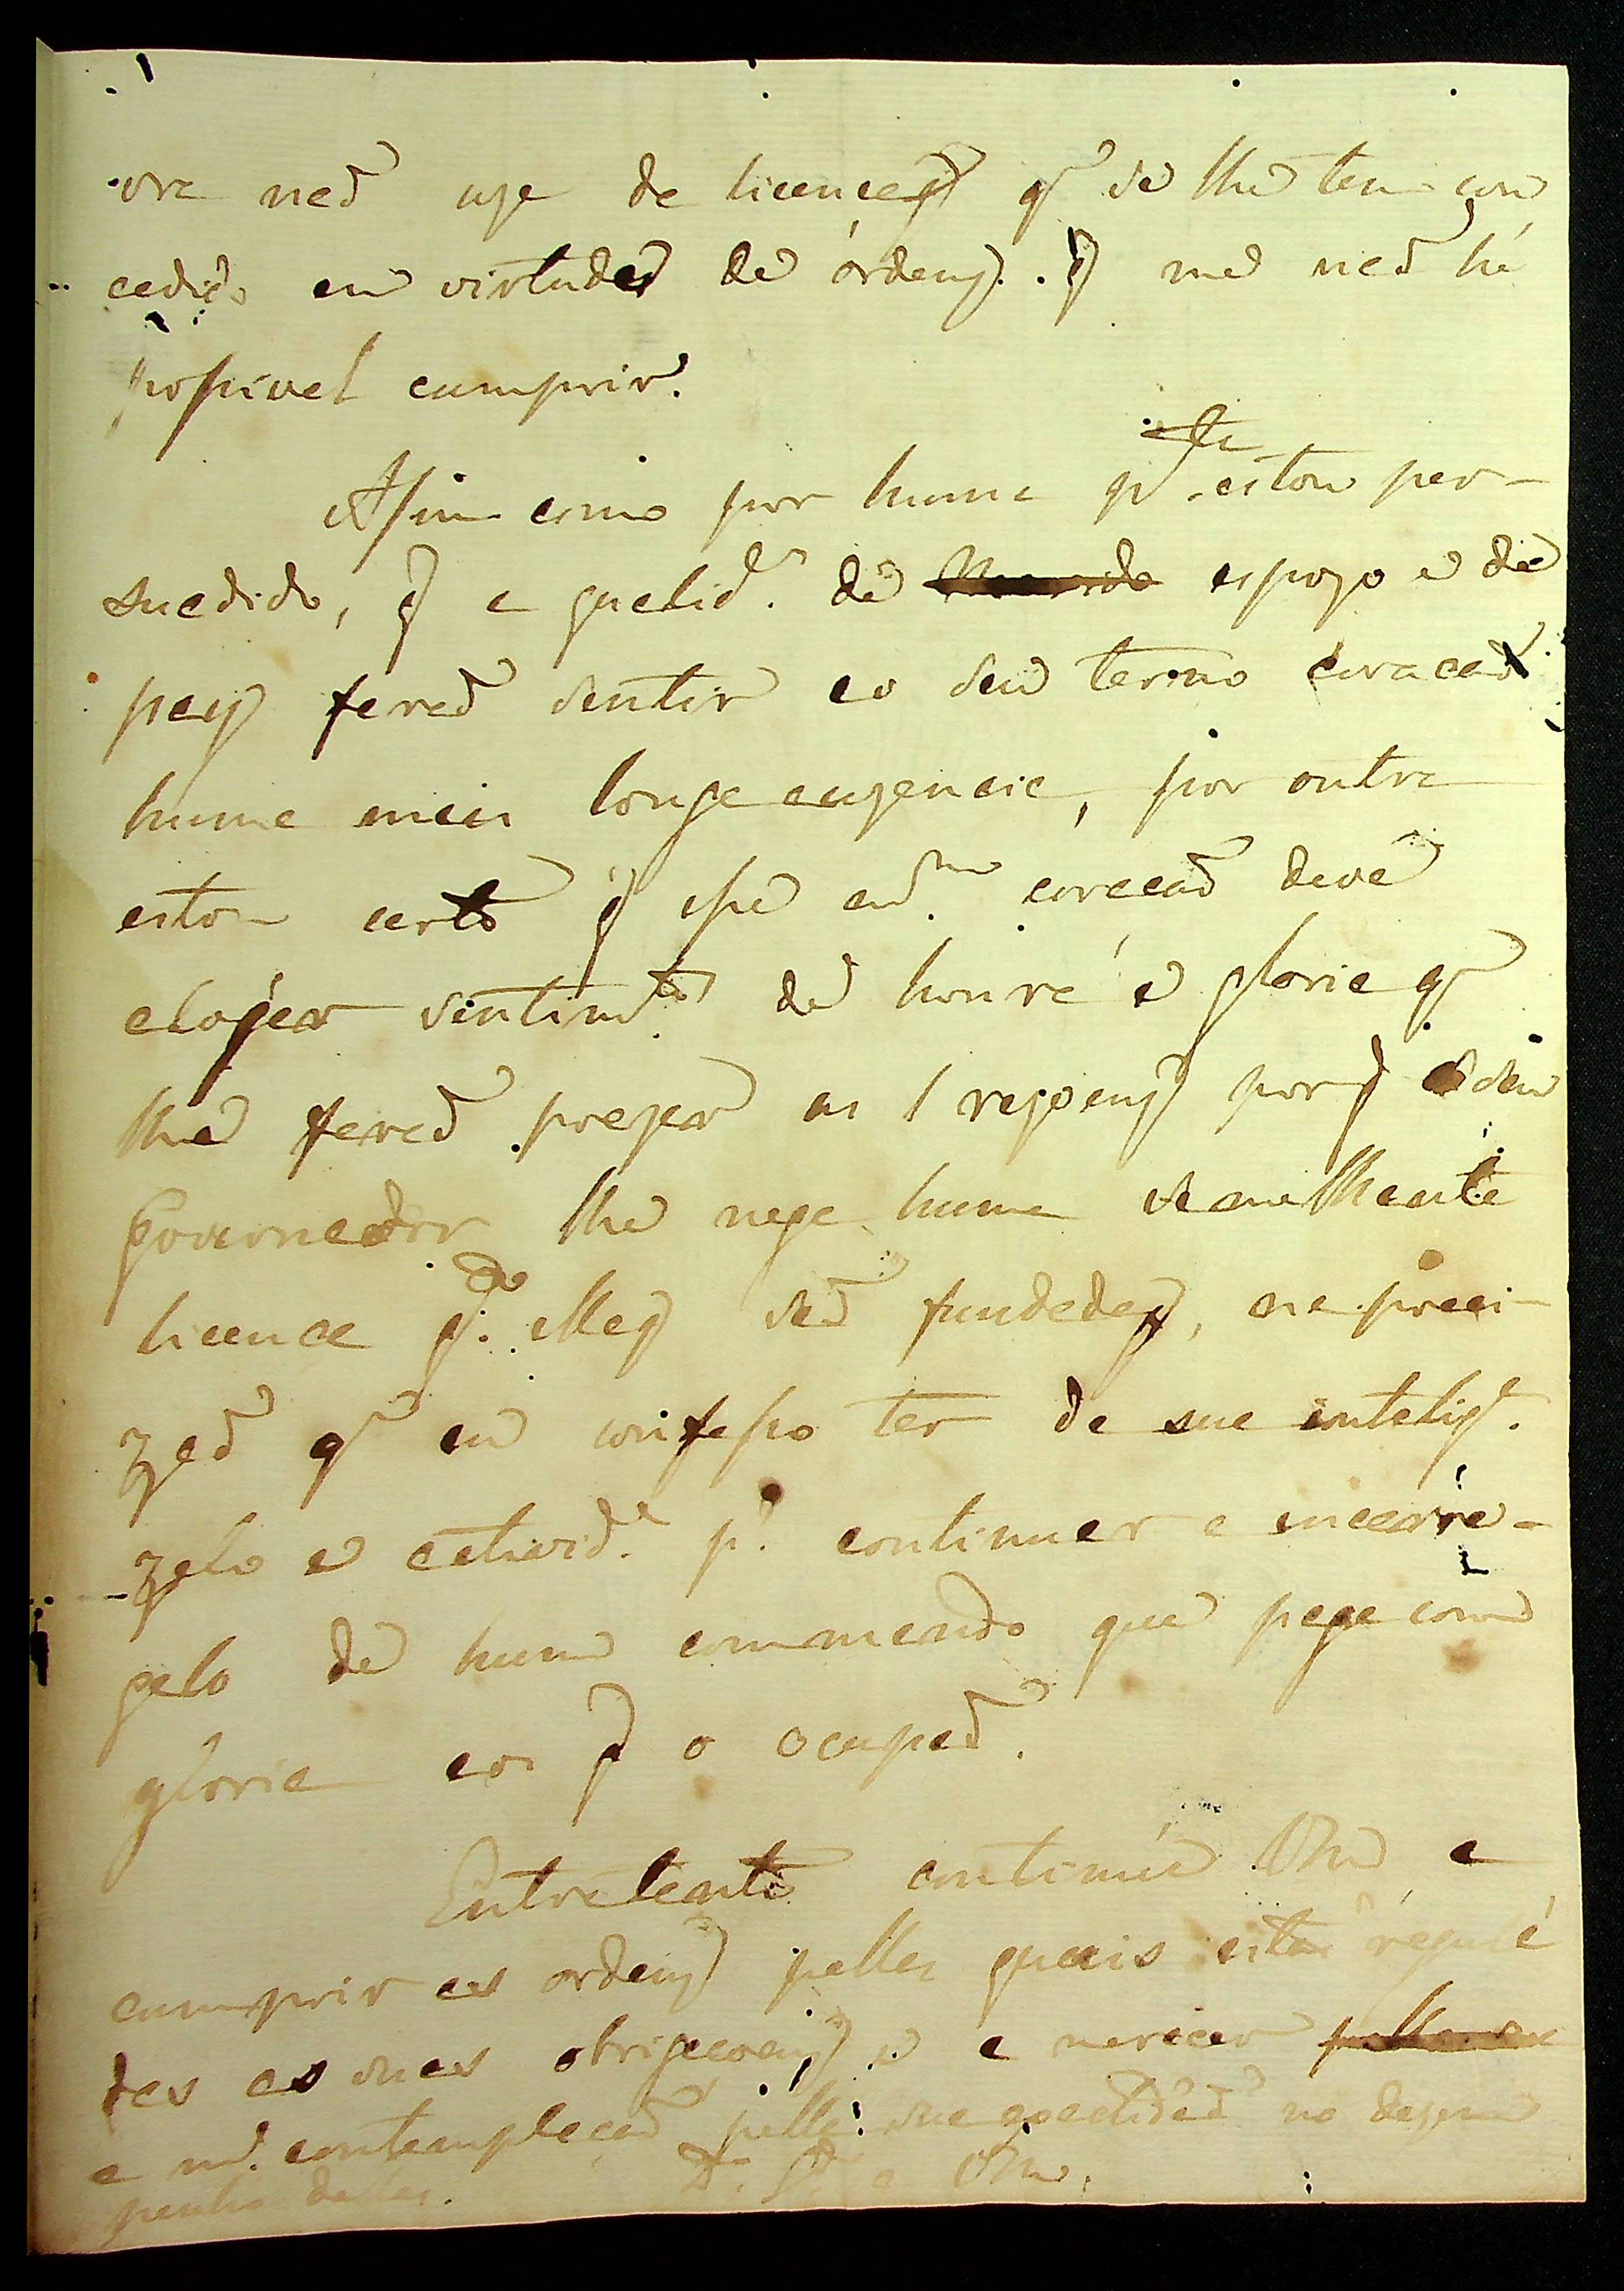 ora naõ use da licença q̃ se lhe tem con
cedido em virtude de órdens q̃ me naõ hé
possivel cumprir.
Assim como por huma p.te estou per-
suadido, q̃ a qualid.e de espozo e de
pay faraõ sentir ao seu terno coraçaõ
huma mais longa auzencia, por outra
estou certo q̃ esse m.mo coraçaõ deve
alojar sentim.tos de honra e gloria q̃
lhe faraõ prezar as razoens por q̃ o seu
Governador lhe nega huma semelhante
licença q.do ellas saõ fundadas, na preci-
zaõ q̃ eu confesso ter da sua intelig.a
zelo e ativid.e p.a continuar a encarre-
galo de hum commando que paga com
gloria aos q̃ o ocupaõ.
Entretanto continúe Vm.ce a
cumprir as ordens pellas quais estaõ regulá
das as suas obrigaçoens e a merecer
a m.a contemplaçaõ pella sua exactidaõ no dezem
penho dellas. D.s G.de a Vm.ce